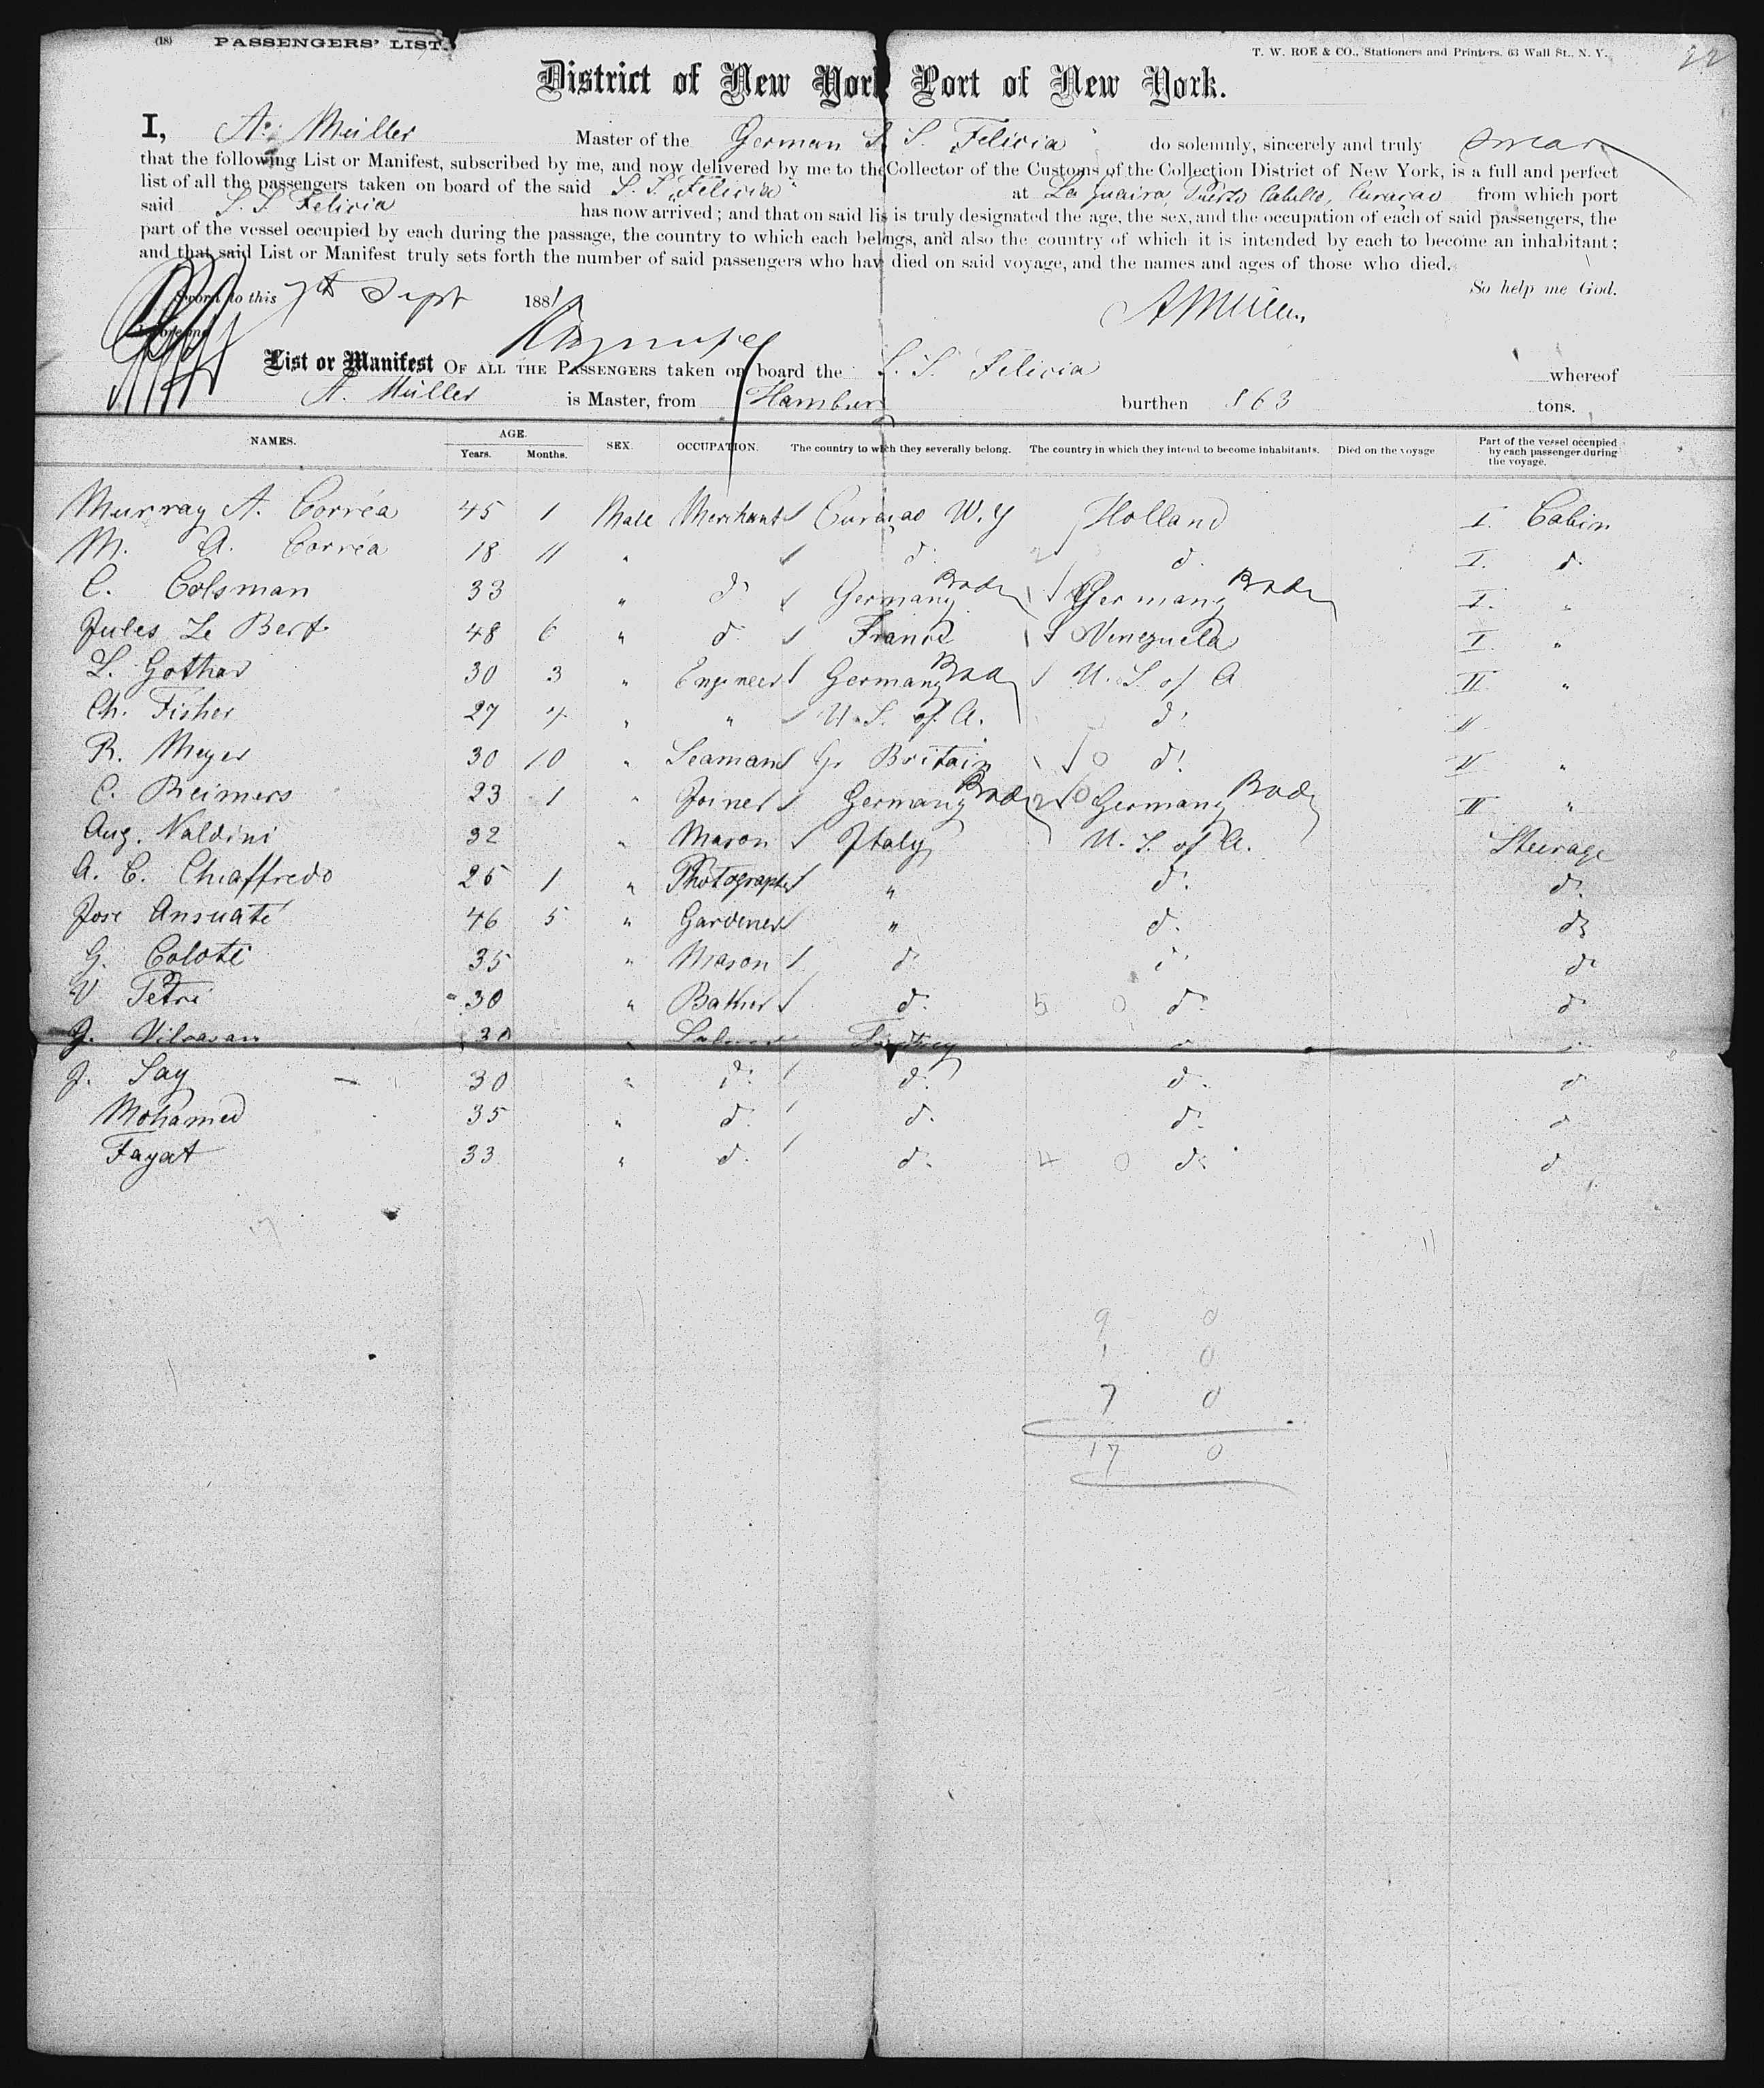 (18) PASSENGERS' LIST.
T. W. ROE & CO., Stationers and Printers, 63 Wall St., N. Y.
District of New York Port of New York.
I, A. Müller Master of the German S. S. "Felicia" do solemnly, sincerely and truly swear
that the following List or Manifest, subscribed by me, and now delivered by me to the Collector of the Customs of the Collection District of New York, is a full and perfect
list of all the passengers taken on board of the said S. S. "Felicia" at La Guaira, Puerto Cabello, Curaçao from which port
said S. S. Felicia has now arrived; and that on said list is truly designated the age, the sex, and the occupation of each of said passengers, the
part of the vessel occupied by each during the passage, the country to which each belongs, and also the country of which it is intended by each to become an inhabitant;
and that said List or Manifest truly sets forth the number of said passengers who have died on said voyage, and the names and ages of those who died.
So help me God.
Sworn to this 7th Sept 1881
A Müller
before me
List or Manifest OF ALL THE PASSENGERS taken on board the S. S. Felicia whereof
A. Müller is Master, from Hamburg burthen 863 tons.
NAMES. AGE. Years. Months. SEX. OCCUPATION. The country to which they severally belong. The country in which they intend to become inhabitants. Died on the voyage Part of the vessel occupied by each passenger during the voyage.
Murray A. Corréa 45 1 Male Merchant Curaçao W.I. Holland I. Cabin
M. A. Corréa 18 11 " d. d. I. d.
C. Colsman 33 " d. Germany Germany I. "
Jules Le Bert 48 6 " d. France Venezuela I "
L. Gothar 30 3 " Engineer Germany U. S. of A II "
Ch. Fisher 27 4 " " U. S. of A. d. II
R. Meyer 30 10 " Seaman Gr Britain d. II "
C. Reimers 23 1 " Joiner Germany Germany II "
Aug. Naldini 32 " Mason Italy U. S. of A. Steerage
A. C. Chiaffredo 25 1 " Photographer " d. d.
Jose Ansuate 46 5 " Gardener " d. d.
G. Coloti 35 " Mason d. d. d.
V Petri 30 " d. 5 0 d. d.
J. 30 "
J. Say 30 " d. d. d. d
Mohamed 35 " d. d. d. d
Fayat 33 " d. d. 4 0 d. d
17
9 0
1 0
7 0
17 0